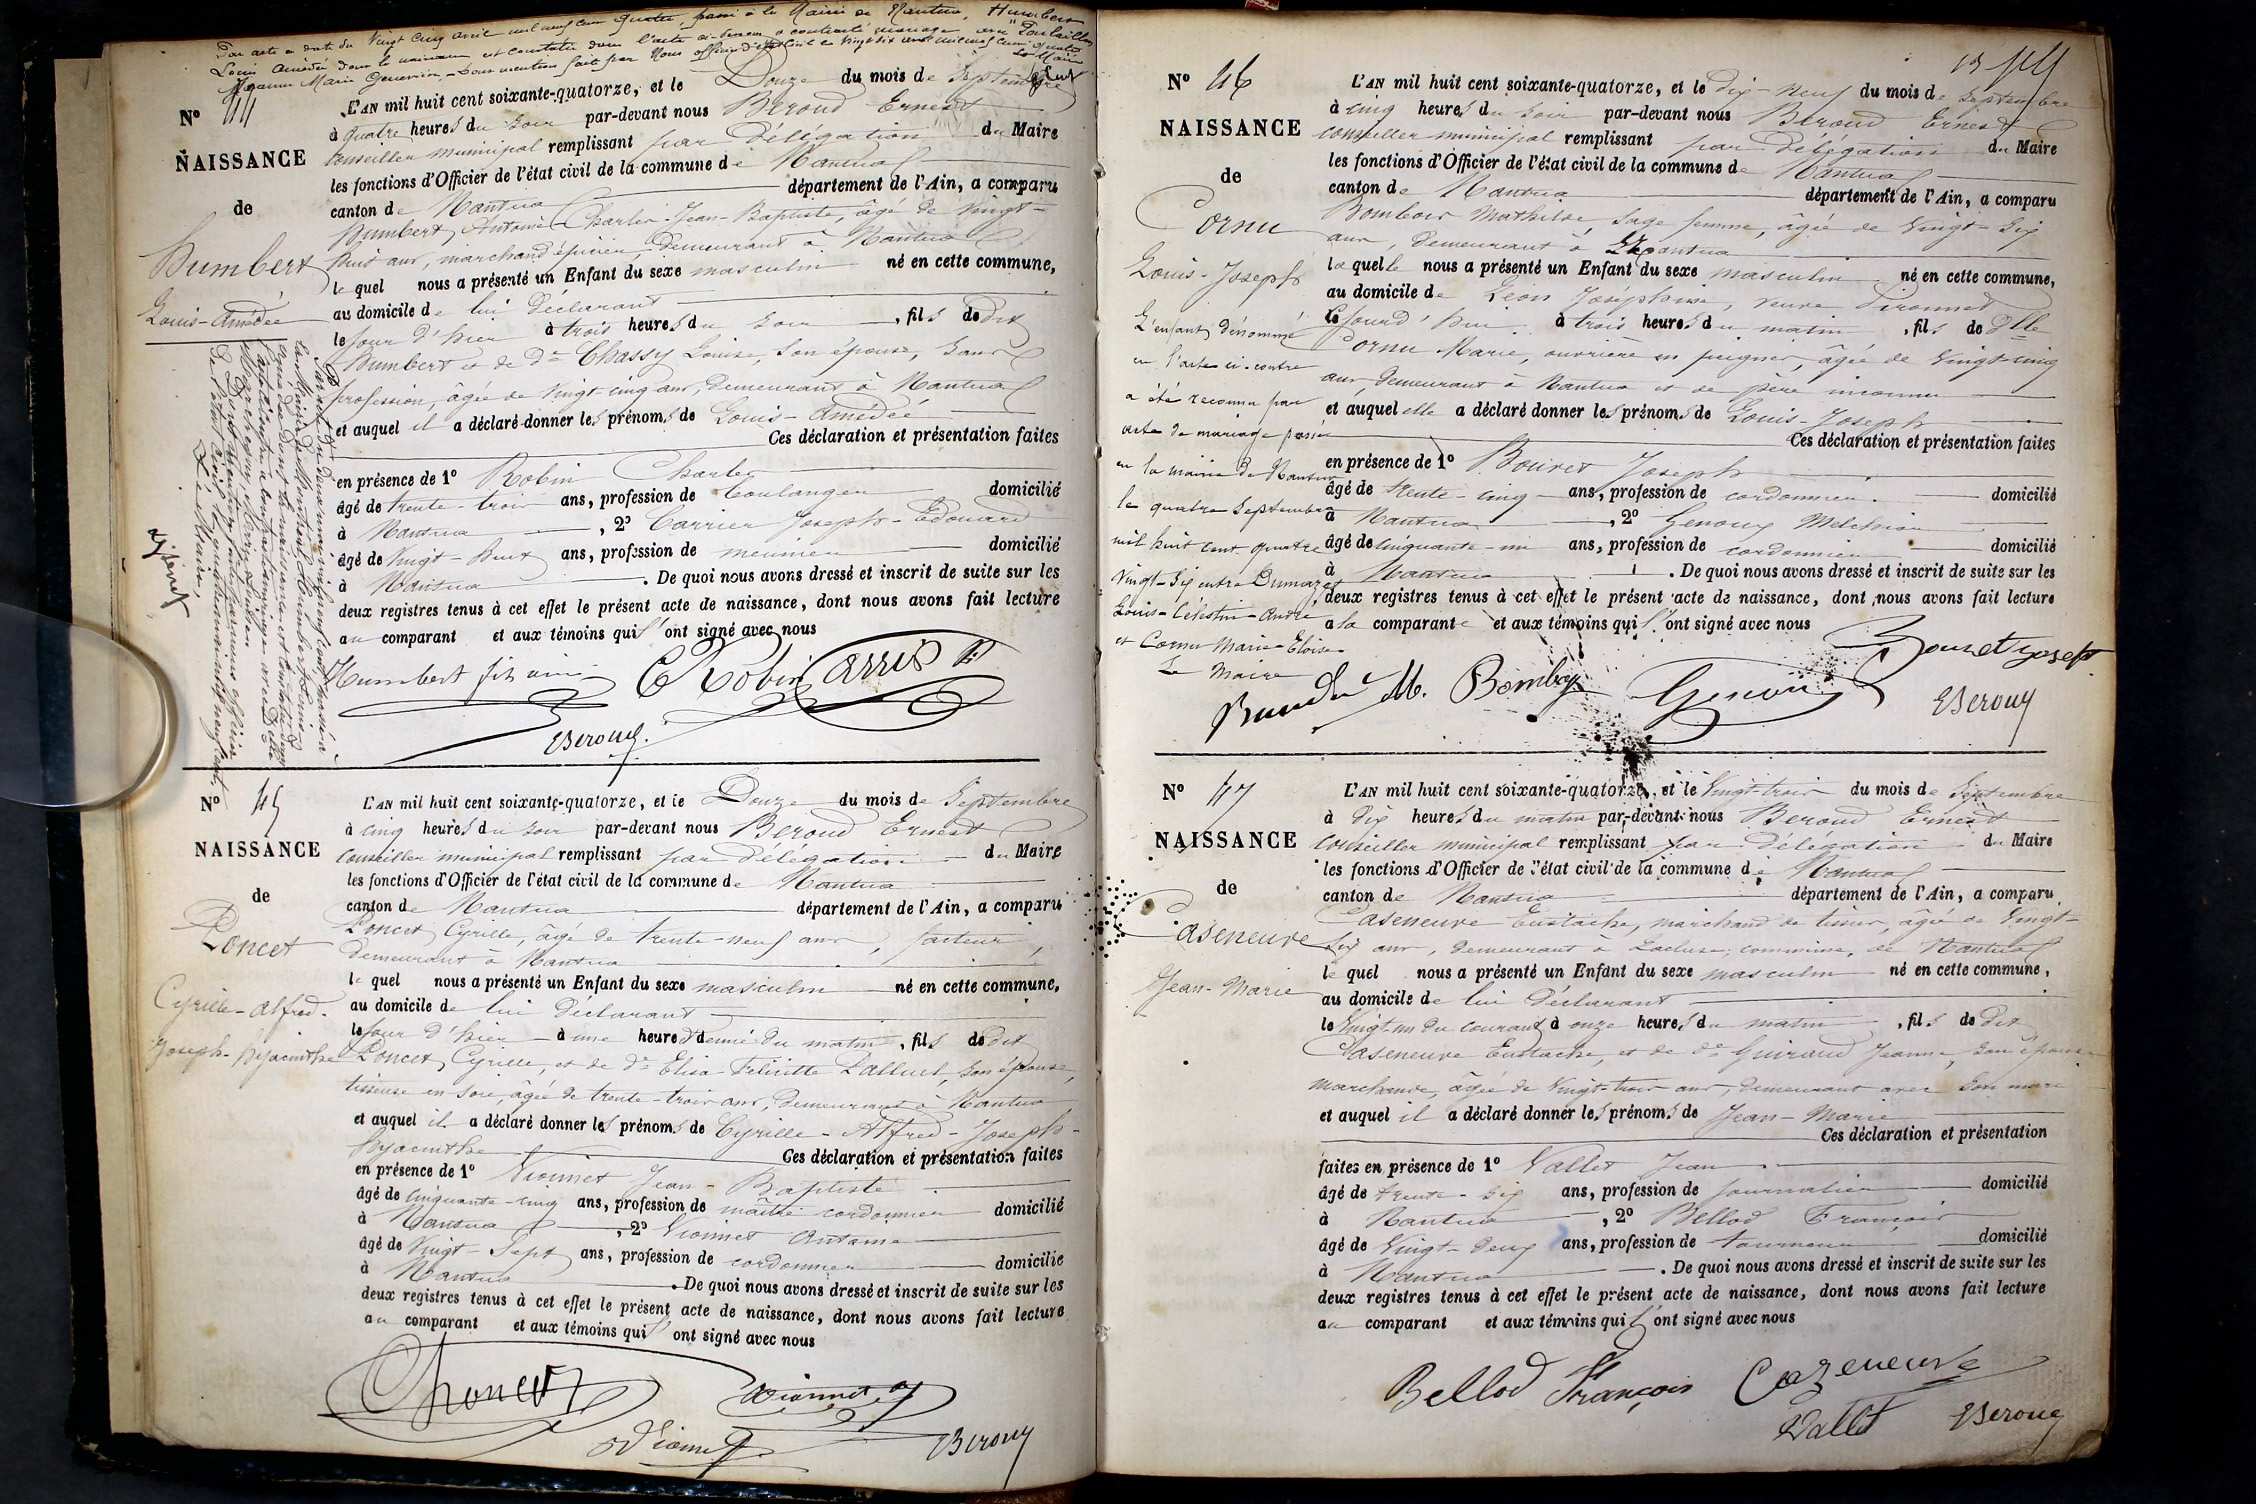 Par acte en date du vingt cinq avril mil neuf cent quatre, passé à la Mairie de Nantua, Humbert
Louis Amédée dont la naissance est constatée dans l'acte ci-dessous a contracté mariage avec
Jeanne Marie Genevière. Dont mention faite par Nous officier d'état civil le vingt six avril mil neuf cent quatre
Le Maire
N° 44
NAISSANCE
de
Humbert
Louis-Amédée
L'AN mil huit cent soixante-quatorze, et le Douze du mois de Septembre
à quatre heures du soir par-devant nous Beroud Ernest
Conseiller municipal remplissant par Délégation du Maire
les fonctions d'Officier de l'état civil de la commune de Nantua
canton de Nantua département de l'Ain, a comparu
Humbert Antoine Charles-Jean-Baptiste, âgé de Vingt-
huit ans, marchand épicier, demeurant à Nantua
le quel nous a présenté un Enfant du sexe masculin né en cette commune,
au domicile de lui Déclarant
le jour d'hier à trois heures du soir, fils de dit
Humbert et de De Chassy Louise, son épouse, sans
profession, âgée de Vingt cinq ans, demeurant à Nantua
et auquel il a déclaré donner les prénoms de Louis-Amédée
Ces déclaration et présentation faites
en présence de 1° Robin Charles
âgé de trente-trois ans, profession de boulanger domicilié
à Nantua, 2° Carrier Joseph-Edouard
âgé de Vingt-huit ans, profession de meunier domicilié
à Nantua. De quoi nous avons dressé et inscrit de suite sur les
deux registres tenus à cet effet le présent acte de naissance, dont nous avons fait lecture
au comparant et aux témoins qui l'ont signé avec nous
Humbert fils ainé C Robin Carrier
E Beroud
N° 45
NAISSANCE
de
Poncet
Cyrille-Alfred-
Joseph-Hyacinthe
L'AN mil huit cent soixante-quatorze, et le Douze du mois de Septembre
à cinq heures du soir par-devant nous Beroud Ernest
Conseiller municipal remplissant par Délégation du Maire
les fonctions d'Officier de l'état civil de la commune de Nantua
canton de Nantua département de l'Ain, a comparu
Poncet Cyrille, âgé de trente-neuf ans, facteur,
demeurant à Nantua
le quel nous a présenté un Enfant du sexe masculin né en cette commune,
au domicile de lui Déclarant
le jour d'hier à une heure et demie du matin, fils de dit
Poncet Cyrille, et de De Elisa Félicitte Lalluet, son épouse,
tisseuse en soie, âgée de trente-trois ans, demeurant à Nantua
et auquel il a déclaré donner les prénoms de Cyrille-Alfred-Joseph-
Hyacinthe Ces déclaration et présentation faites
en présence de 1° Vionnet Jean-Baptiste
âgé de cinquante-cinq ans, profession de maître cordonnier domicilié
à Nantua, 2° Vionnet Antoine
âgé de Vingt-Sept ans, profession de cordonnier domicilié
à Nantua. De quoi nous avons dressé et inscrit de suite sur les
deux registres tenus à cet effet le présent acte de naissance, dont nous avons fait lecture
au comparant et aux témoins qui l'ont signé avec nous
C Poncet Vionnet
Vionnet E Beroud
N° 46
NAISSANCE
de
Cornu
Louis-Joseph
L'enfant dénommé
en l'acte ci-contre
a été reconnu par
acte de mariage passé
en la mairie de Nantua
le quatre Septembre
mil huit cent quatre
vingt-six entre Dumarest
Louis-Célestin-André
et Cornu Marie Eloise
Le Maire
L'AN mil huit cent soixante-quatorze, et le Dix-neuf du mois de Septembre
à cinq heures du soir par-devant nous Beroud Ernest
Conseiller municipal remplissant par Délégation du Maire
les fonctions d'Officier de l'état civil de la commune de Nantua
canton de Nantua département de l'Ain, a comparu
Bomboir Mathilde, Sage femme, âgée de Vingt-Six
ans, demeurant à Nantua
la quelle nous a présenté un Enfant du sexe masculin né en cette commune,
au domicile de Léon Joséphine, veuve Pironnet
le jourd'hui à trois heures du matin, fils de Dlle
Cornu Marie, ouvrière en peignes, âgée de Vingt-cinq
ans, demeurant à Nantua et de père inconnu
et auquel elle a déclaré donner les prénoms de Louis-Joseph
Ces déclaration et présentation faites
en présence de 1° Bouvet Joseph
âgé de trente-cinq ans, profession de cordonnier domicilié
à Nantua, 2° Genoux Melchior
âgé de cinquante-un ans, profession de cordonnier domicilié
à Nantua. De quoi nous avons dressé et inscrit de suite sur les
deux registres tenus à cet effet le présent acte de naissance, dont nous avons fait lecture
à la comparante et aux témoins qui l'ont signé avec nous
Bouvet Joseph
M. Bomboy Genoux E Beroud
N° 47
NAISSANCE
de
Caseneuve
Jean-Marie
L'AN mil huit cent soixante-quatorze, et le Vingt-trois du mois de Septembre
à Dix heures du matin par-devant nous Beroud Ernest
Conseiller municipal remplissant par Délégation du Maire
les fonctions d'Officier de l'état civil de la commune de Nantua
canton de Nantua département de l'Ain, a comparu
Caseneuve Eustache, marchand de tissus, âgé de Vingt-
Six ans, demeurant à Lacluse, commune de Nantua
le quel nous a présenté un Enfant du sexe masculin né en cette commune,
au domicile de lui Déclarant
le Vingt-un du courant à onze heures du matin, fils de dit
Caseneuve Eustache, et de De Guiraud Jeanne, son épouse
marchande, âgée de Vingt-trois ans, demeurant avec son mari
et auquel il a déclaré donner les prénoms de Jean-Marie
Ces déclaration et présentation
faites en présence de 1° Vallet Jean
âgé de trente-six ans, profession de journalier domicilié
à Nantua, 2° Bellod François
âgé de Vingt-deux ans, profession de tourneur domicilié
à Nantua. De quoi nous avons dressé et inscrit de suite sur les
deux registres tenus à cet effet le présent acte de naissance, dont nous avons fait lecture
au comparant et aux témoins qui l'ont signé avec nous
Bellod François Cazeneuve
Vallet E Beroud